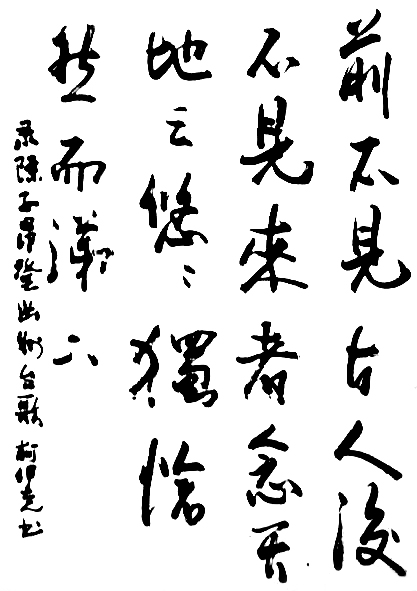 前不見古人後
不見來者念天
地之悠〻獨愴
然而涕下
录陈子昂登幽州台歌 柯 书